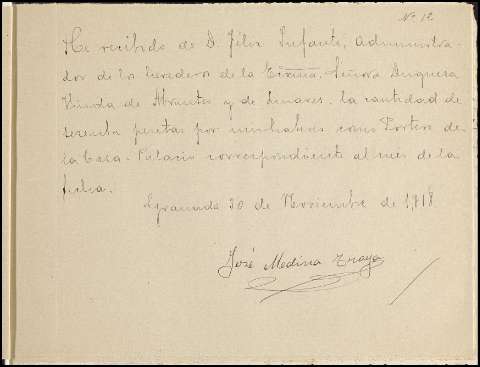 Nº 12
He recibido de D. Felix Infante, administra-
dor de los herederos de la Excma. Señora Duquesa
Viuda de Abrantes y de Linares, la cantidad de
sesenta pesetas por mi haber como Portero de
la Casa-Palacio correspondiente al mes de la
fecha.
Granada 30 de Noviembre de 1918
José Medina